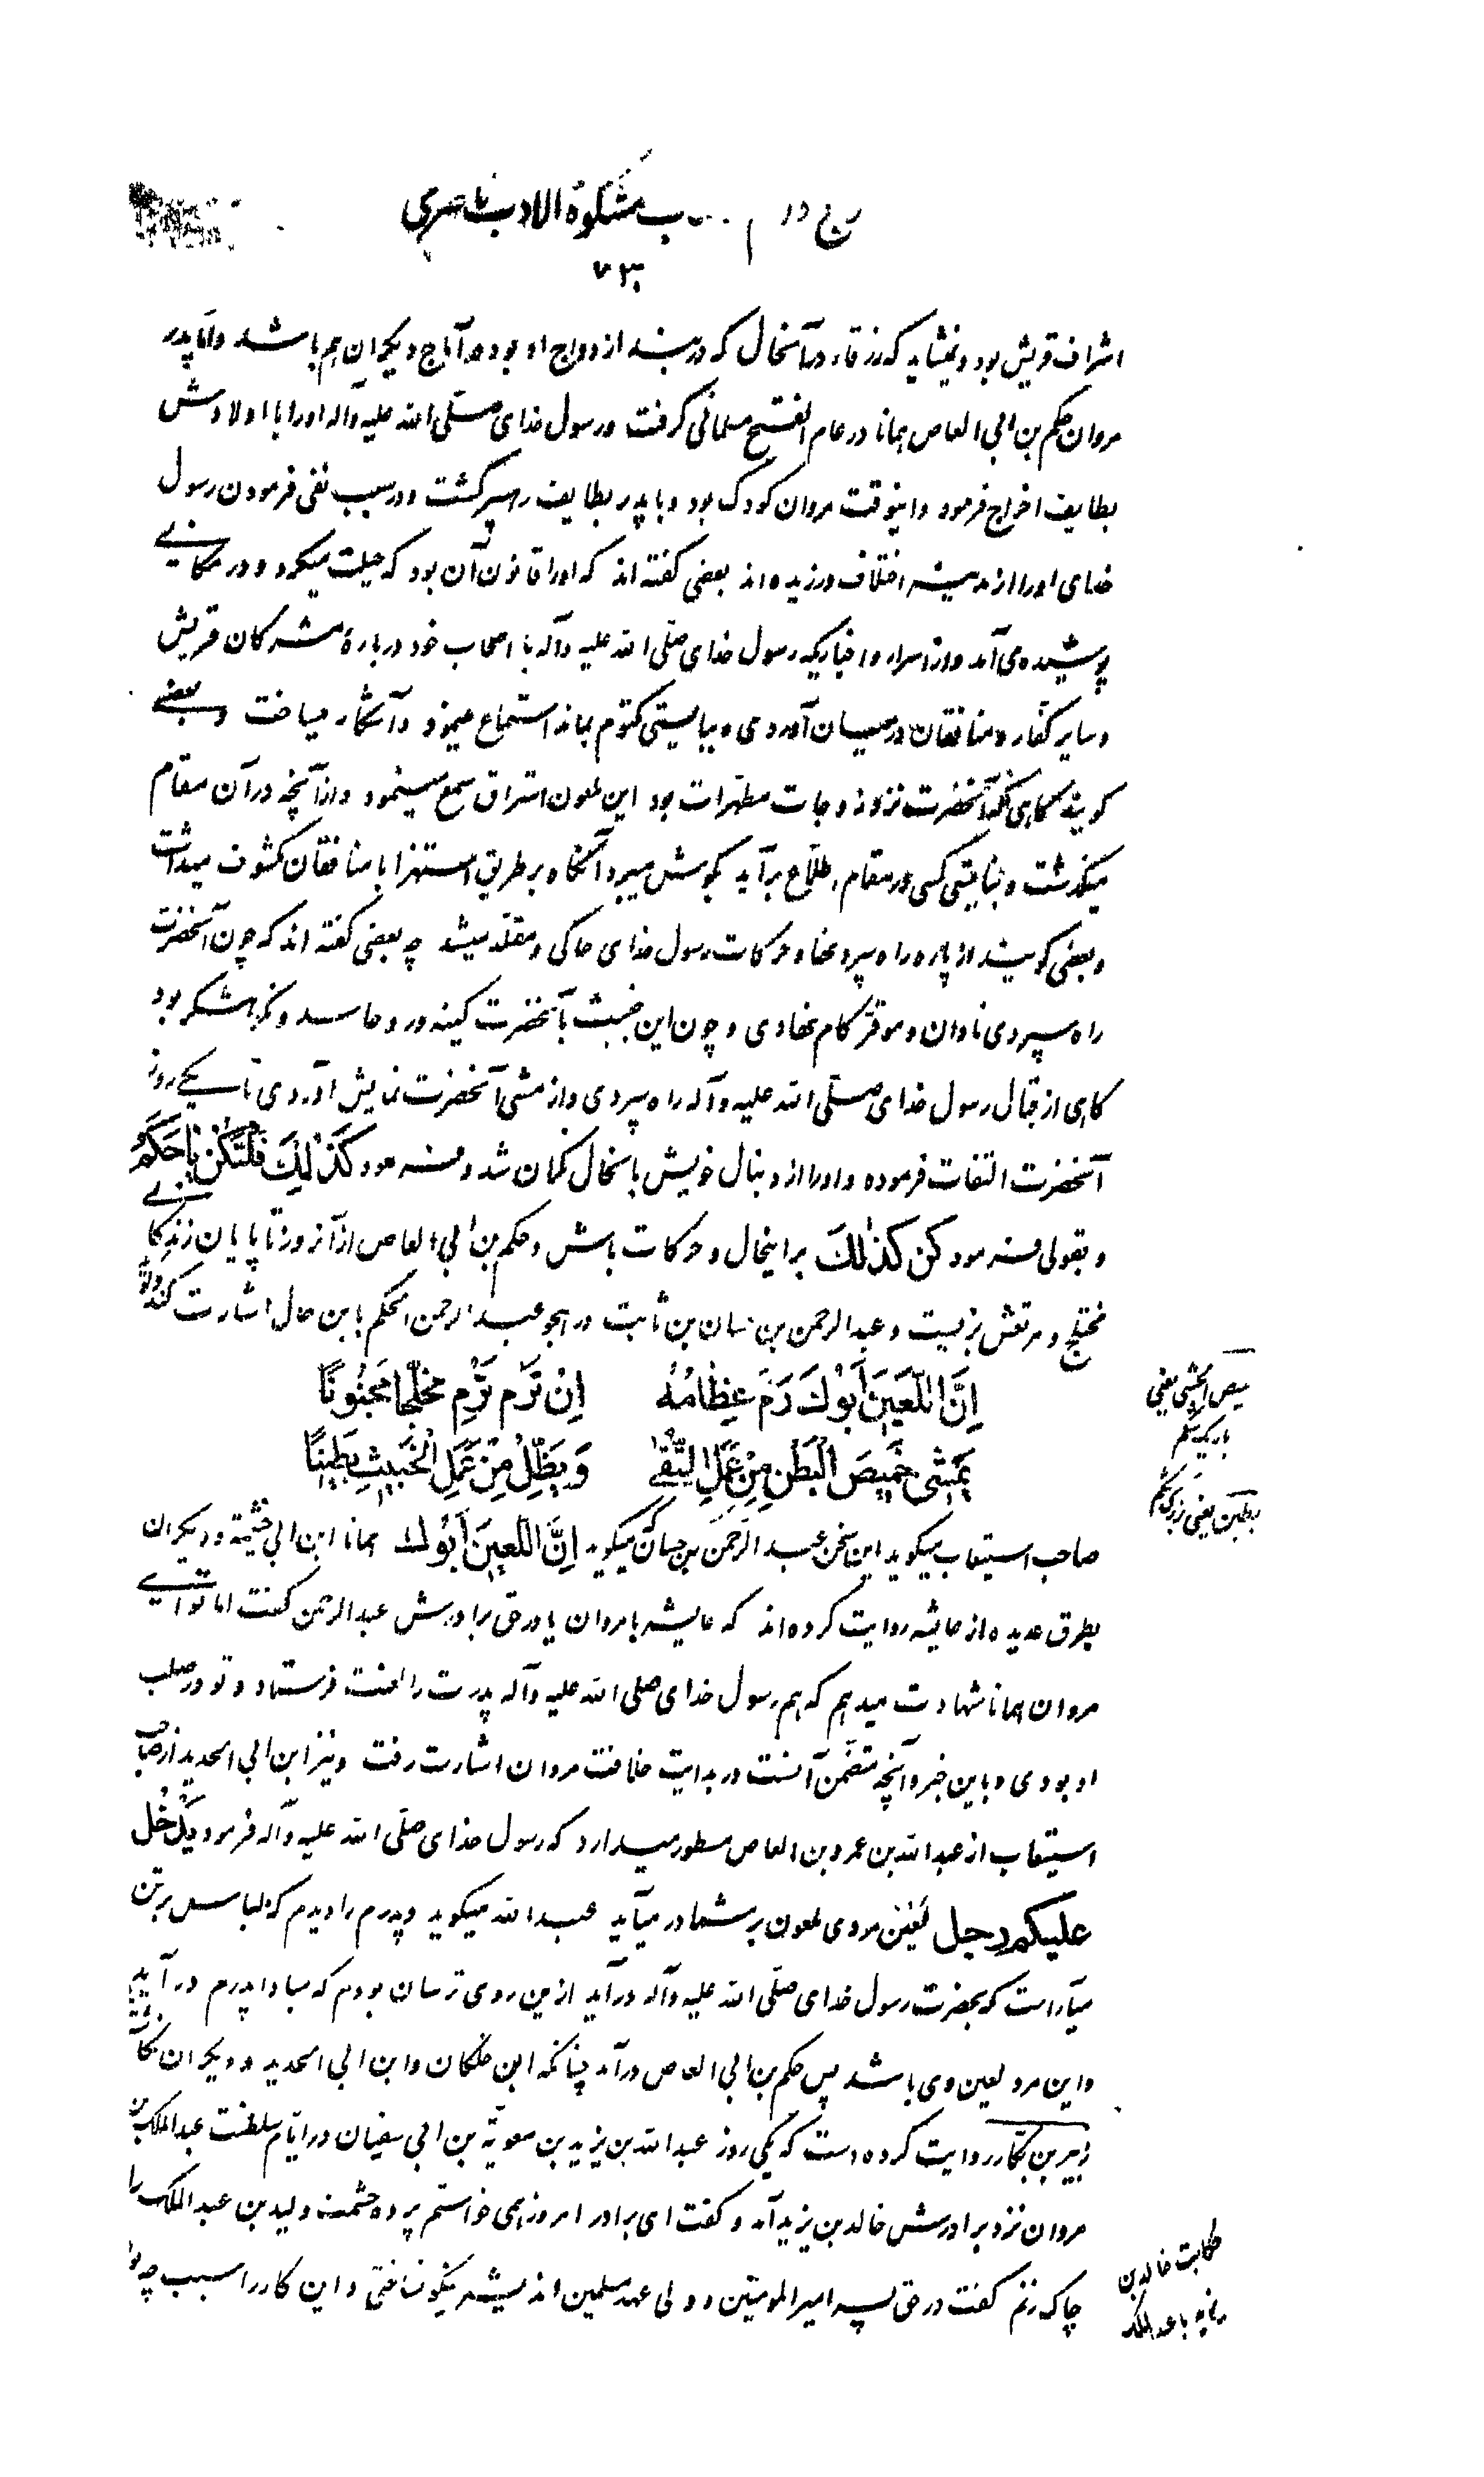 ب مشکوة الادب ناصری
۷۳۰
اشراف قریش بود و نمیشاید که زرقاء در آنحال که در بند ازدواج او بوده آماج دیگران هم باشد و اما پدر
مروان حکم بن ابی العاص همانا در عام الفتح مسلمانی گرفت و رسول خدای صلّی الله علیه و آله او را با اولادش
بطایف اخراج فرمود و اینوقت مروان کودک بود و با پدر بطایف رهسپر گشت و در سبب نفی فرمودن رسول
خدای او را از مدینه اختلاف ورزیده‌اند بعضی گفته‌اند که او را قانون آن بود که حیلت میکرد و در مکانی
پوشیده می‌آمد و از اسرار و اخباریکه رسول خدای صلّی الله علیه و آله با اصحاب خود دربارهٔ مشرکان قریش
و سایر کفّار و منافقان در میان آوردی و ببایستی مکتوم بماند استماع مینمود و آشکار میساخت و بعضی
گویند گاهی که آنحضرت نزد زوجات مطهّرات بود این ملعون استراق سمع مینمود و از آنچه در آن مقام
میگذشت و نبایستی کسی در مقام اطّلاع برآید بگوش میبرد آنگاه بر طریق استهزا با منافقان مکشوف میداشت
و بعضی گویند از پاره راه سپردنها و حرکات رسول خدای حاکی و مقلّد میشد چه بعضی گفته‌اند که چون آنحضرت
راه سپردی ناوان و موقّر گام نهادی و چون این خبیث با آنحضرت کینه‌ور و حاسد و نکوهشگر بود
گاهی از قبال رسول خدای صلّی الله علیه و آله راه سپردی و از مشی آنحضرت نمایش آوردی تا یکی روز
آنحضرت التفات فرموده و او را از دنبال خویش بآنحال نگران شد و فرمود کَذٰلِكَ فَلْتَكُنْ یا حَكَمُ
و بقولی فرمود کن کذٰلك بر اینحال و حرکات باش و حکم بن ابی العاص از آنروز تا پایان زندگانی
مختلج و مرتعش بزیست و عبد الرحمن بن حسان بن ثابت در هجو عبد الرحمن الحکم باین حال اشارت کند و گوید
اِنَّ اللَّعینَ اَبُوكَ رَمَّ عِظامُهُ اِنْ تَرْمِ تَرْمِ مُخَلَّجًا مَجْنُونًا
یَمْشی خَمیصَ الْبَطْنِ مِنْ عَمَلِ التُّقیٰ وَ یَظَلُّ مِنْ عَمَلِ الْخَبیثِ بَطینًا
خمیص الحشی یعنی
باریک شکم
بطین یعنی بزرگ شکم
صاحب استیعاب میگوید این سخن عبد الرّحمن بن حسان که میگوید اِنَّ اللَّعینَ اَبُوك همانا ابن ابی خیثمة و دیگران
بطرق عدیده از عایشه روایت کرده‌اند که عایشه با مروان در حق برادرش عبد الرحمن گفت اما تو ای
مروان همانا شهادت میدهم که هم رسول خدای صلی الله علیه و آله پدرت را لعنت فرستاد و تو در صلب
او بودی و باین خبر و آنچه متضمّن آنست در بدایت خلافت مروان اشارت رفت و نیز ابن ابی الحدید از صاحب
استیعاب از عبد الله بن عمرو بن العاص مسطور میدارد که رسول خدای صلّی الله علیه و آله فرمود یَدْخُل
علیکم رجل لعین مردی ملعون بر شما در میآید عبد الله میگوید و پدرم را دیدم که لباس بر تن
میآراست که بحضرت رسول خدای صلّی الله علیه و آله درآید ازین روی ترسان بودم که مبادا پدرم درآید
و این مرد لعین وی باشد پس حکم بن ابی العاص درآمد چنانکه ابن خلکان و ابن ابی الحدید و دیگران
زبیر بن بکّار روایت کرده است که یکی روز عبد الله بن یزید بن معویة بن ابی سفیان در ایّام سلطنت عبد الملک بن
مروان نزد برادرش خالد بن یزید آمد و گفت ای برادر امروز همی خواستم پرده حشمت ولید بن عبد الملک را
چاک زنم گفت در حق پسر امیر المؤمنین و ولی عهد مسلمین اندیشه نیکو نساختی و این کار را سبب چه بود
حکایت خالد بن
یزید با عبد الملک